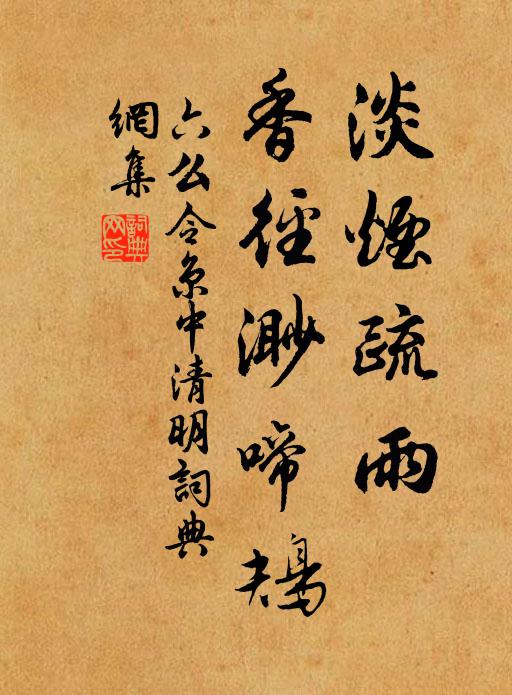 淡煙疏雨
香徑渺啼鴂
六么令京中清明詞典
網集
詞典网印